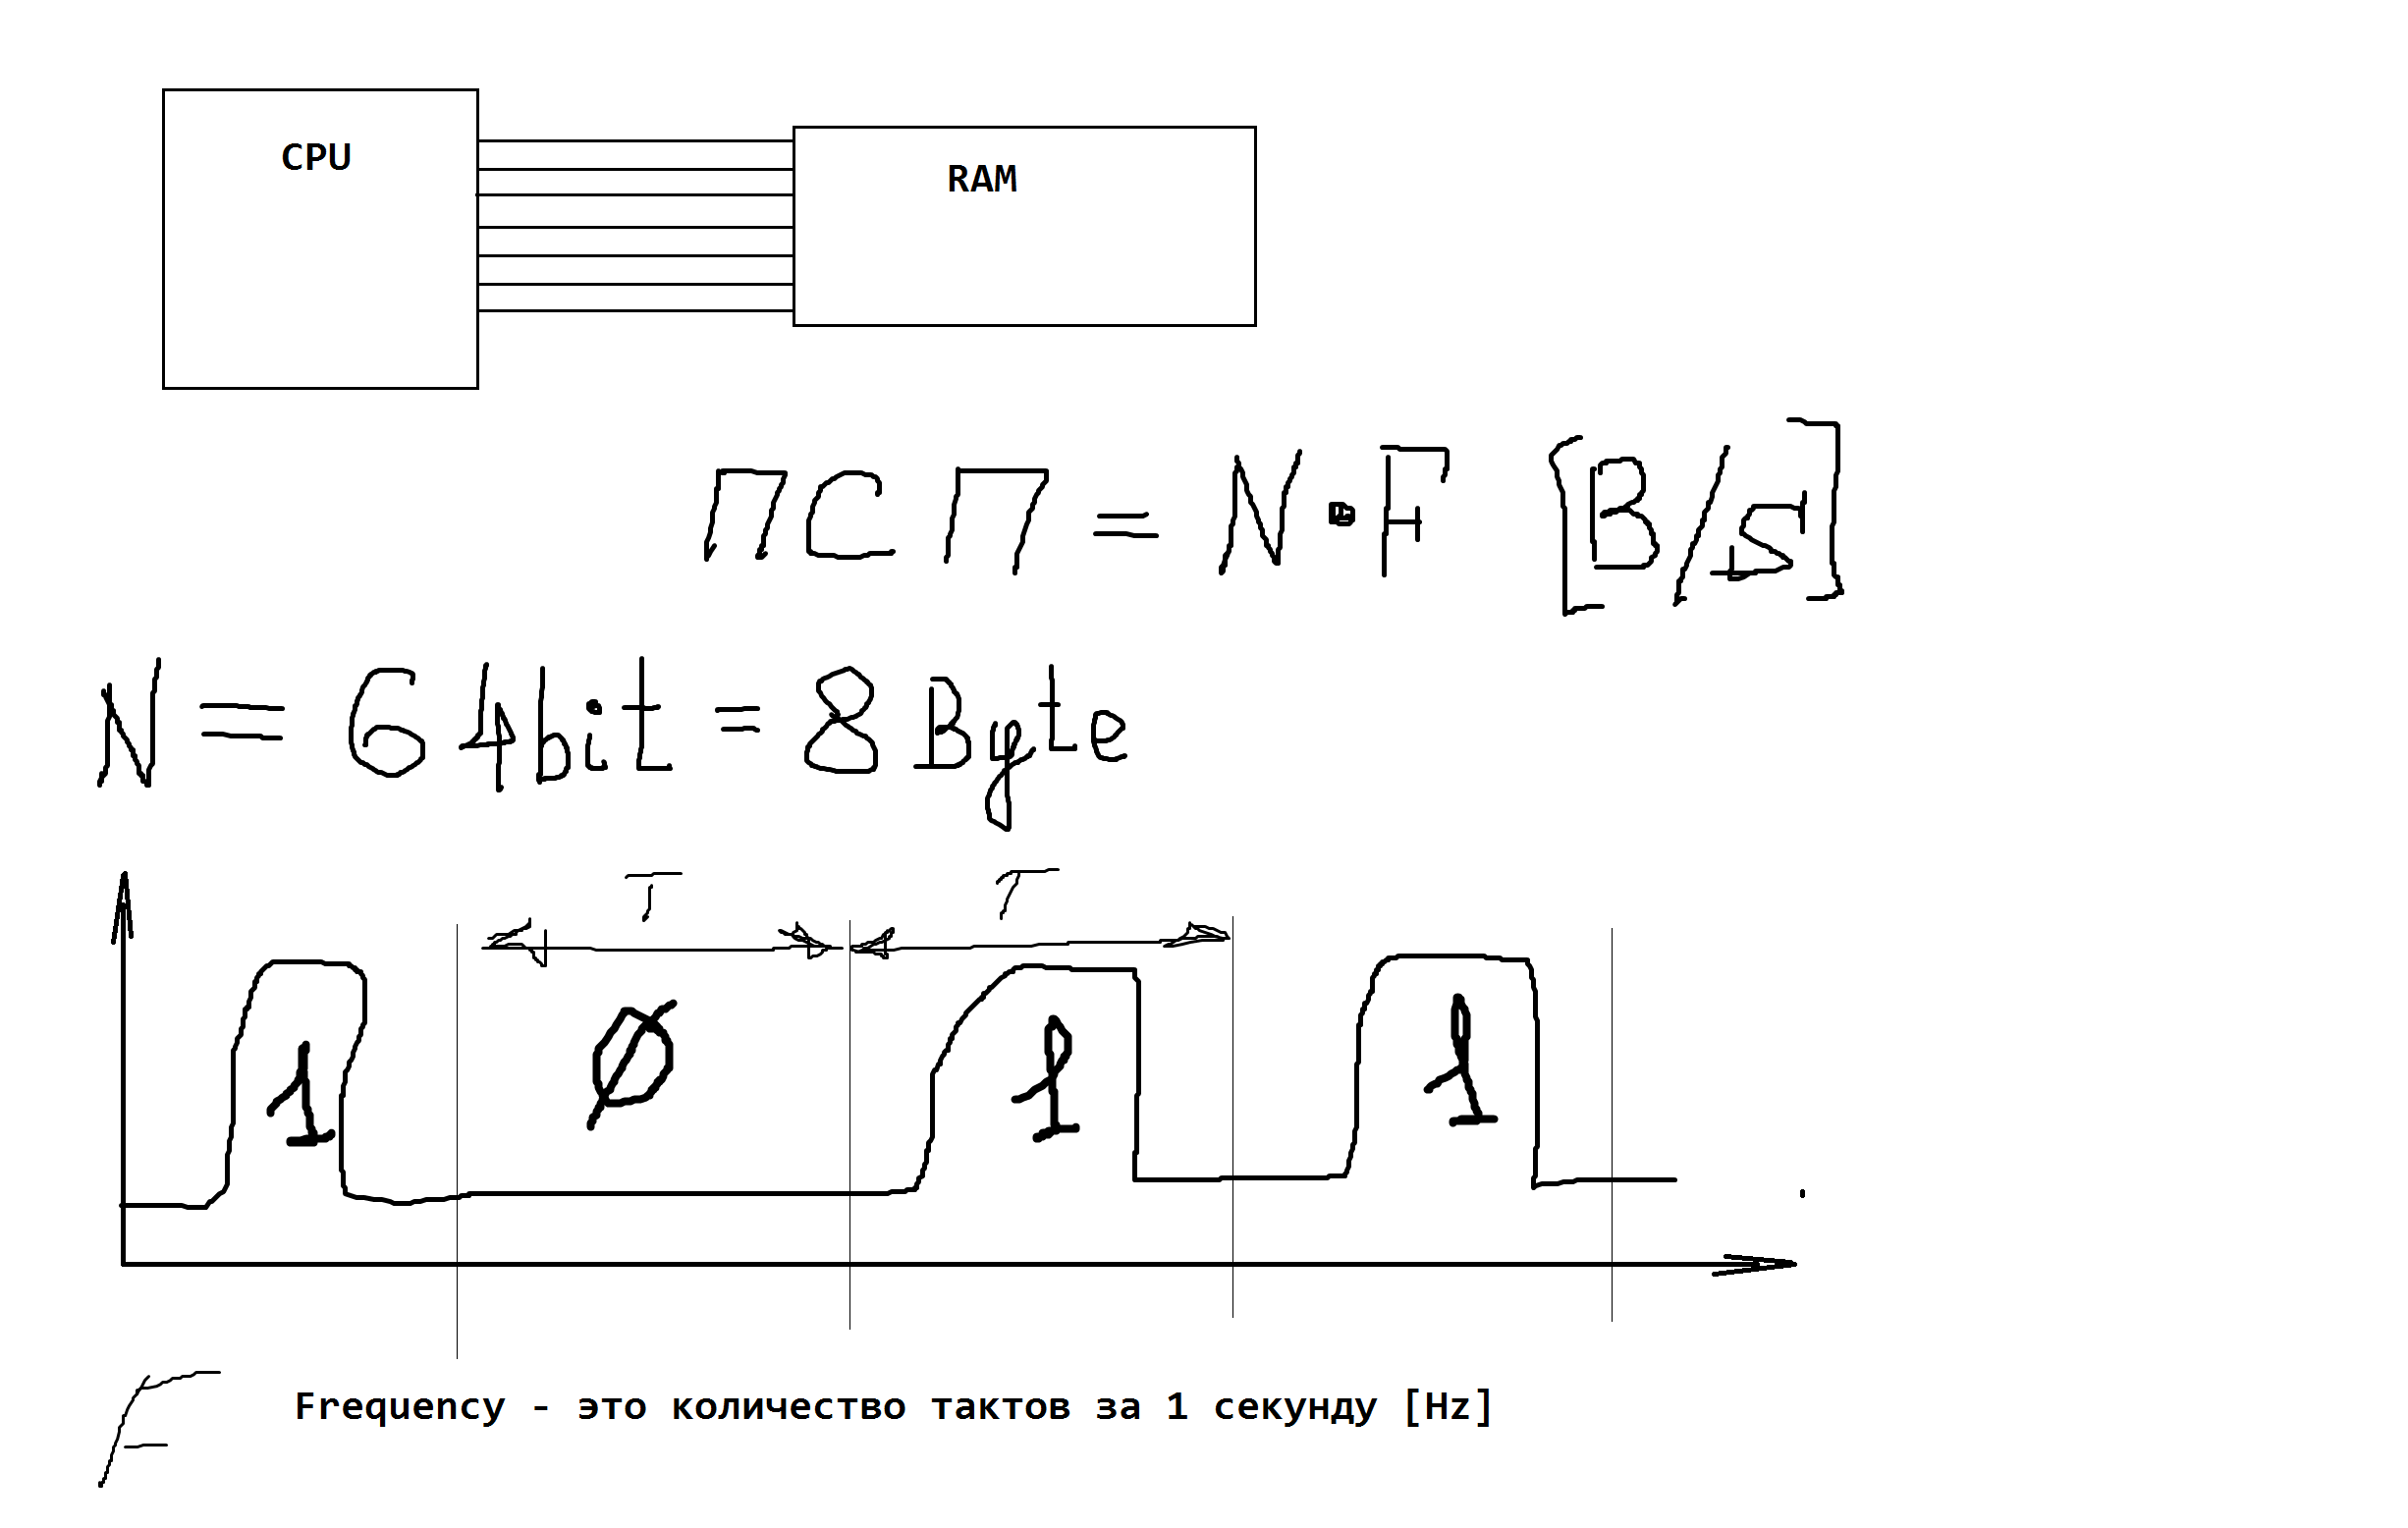 CPU
RAM
ПСП = N · F [B/s]
N = 64bit = 8 Byte
T T
1 0 1 1
F Frequency - это количество тактов за 1 секунду [Hz]